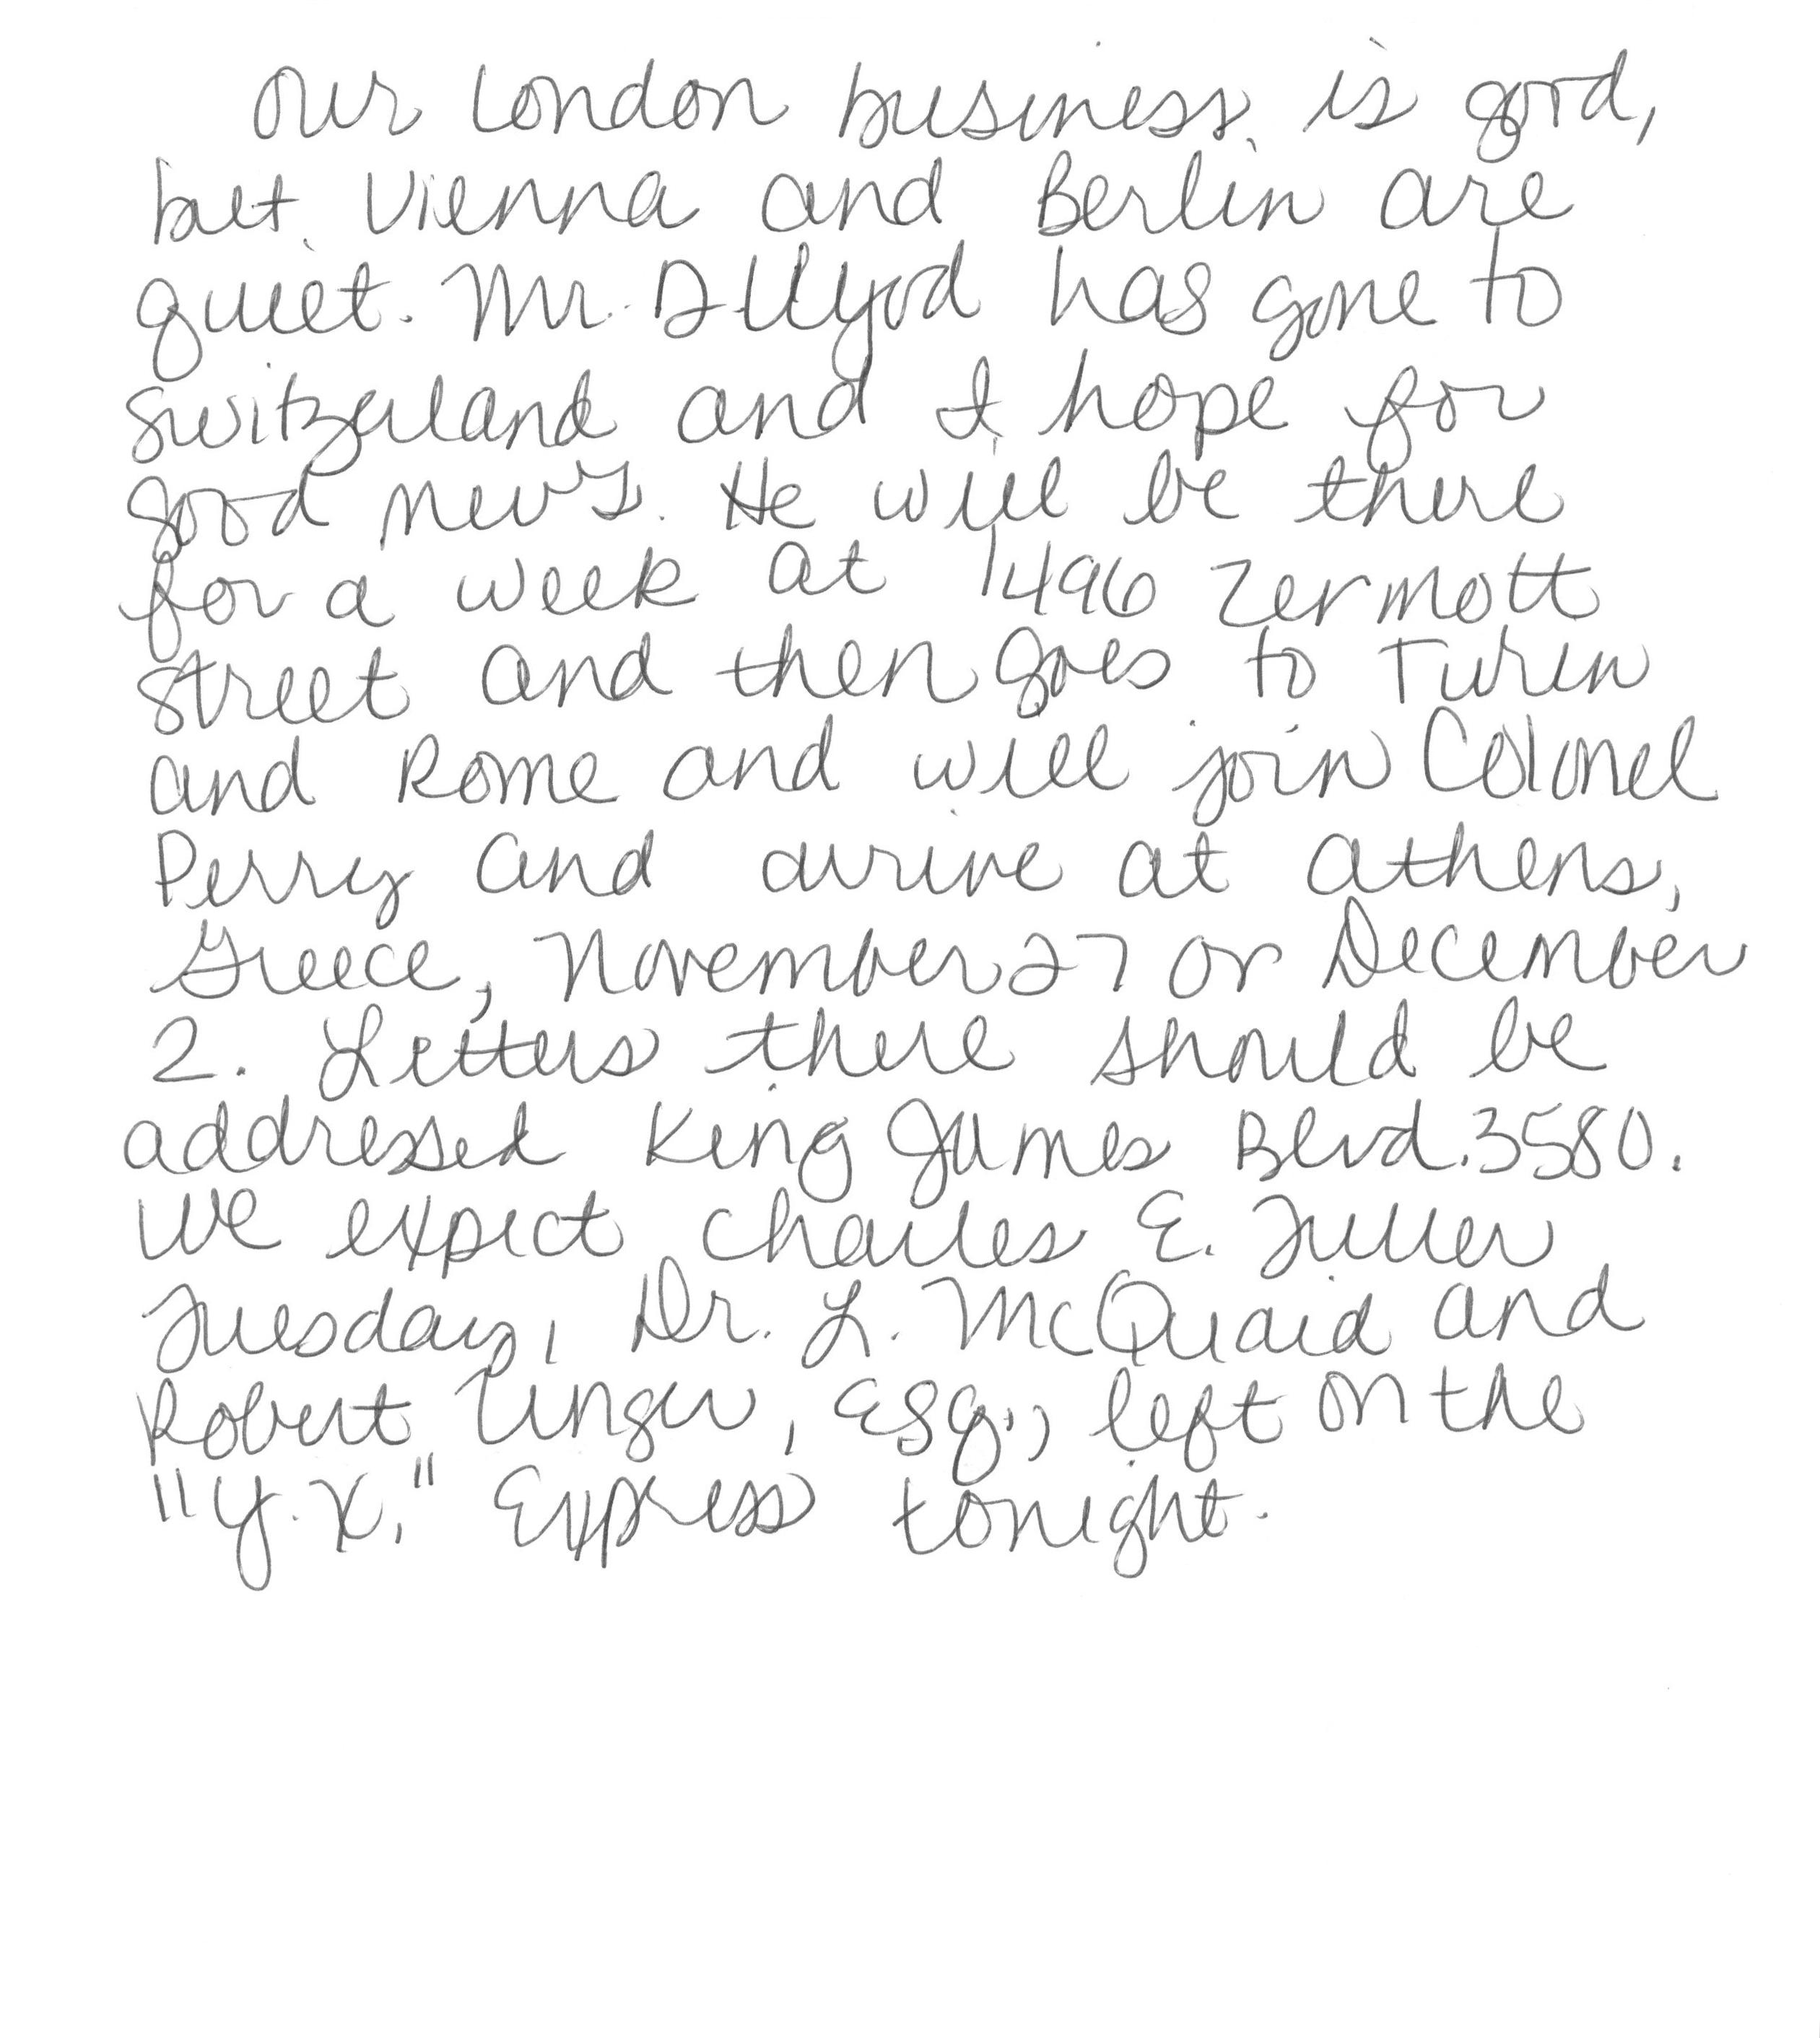 Our London business is good,
but Vienna and Berlin are
quiet. Mr. D. Lloyd has gone to
Switzerland and I hope for
good news. He will be there
for a week at 1496 Zermott
Street and then goes to Turin
and Rome and will join Colonel
Perry and arrive at Athens,
Greece, November 27 or December
2. Letters there should be
addressed King James Blvd. 3580.
We expect Charles E. Fuller
Tuesday, Dr. L. McQuaid and
Robert Unger, Esq., left on the
"Y.X." Express tonight.